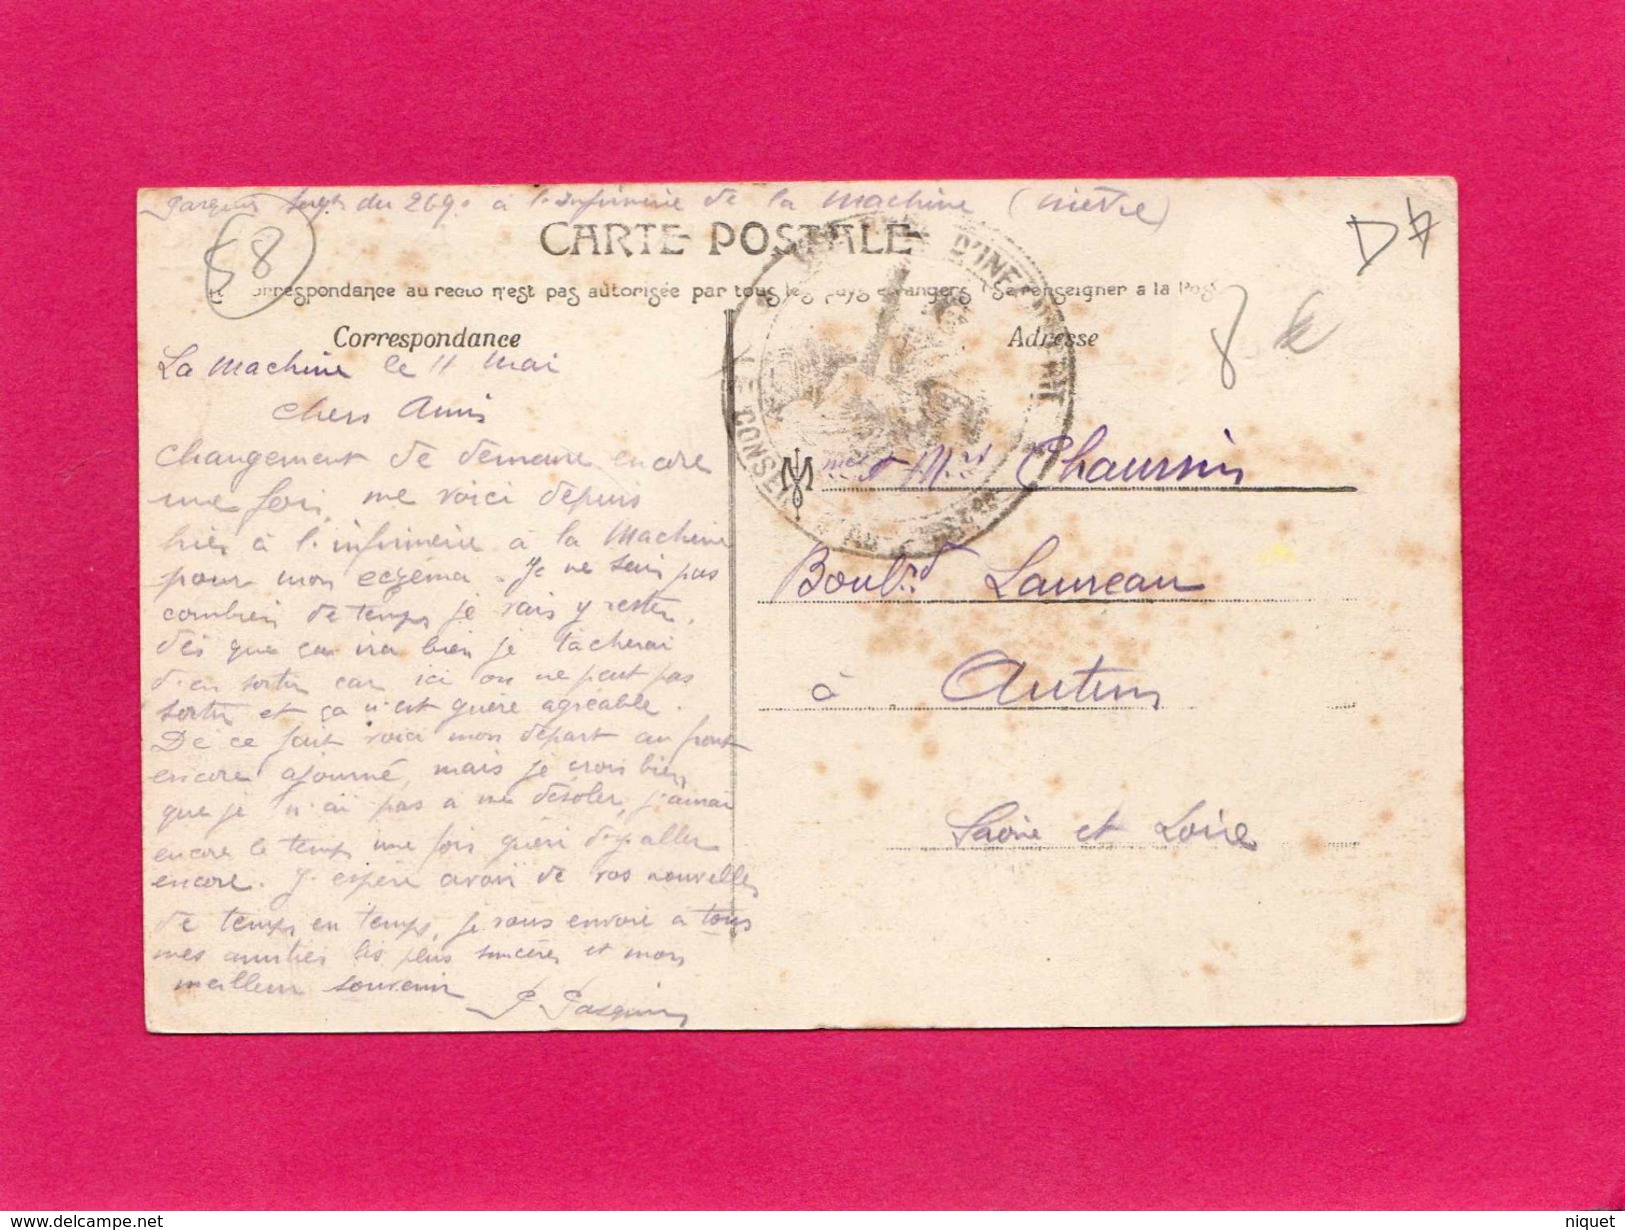 Pasquis Sergt du 269e à l'infirmerie de la Machine (Nièvre)
58
CARTE POSTALE
D'INF
CONSEIL
orrespondance au recto n'est pas autorisée par tous les pays étrangers (Se renseigner à la Pos
Correspondance
Adresse
8 €
La Machine le 11 Mai
Chers Amis
Changement de demeure encore
une fois, me voici depuis
hier à l'infirmerie à la Machine
pour mon eczéma. Je ne sais pas
combien de temps je vais y rester,
dès que ça ira bien je tâcherai
d'en sortir car ici on ne peut pas
sortir et ça n'est guère agréable.
De ce fait voici mon départ au front
encore ajourné, mais je crois bien
que je n'ai pas à me désoler, j'aurai
encore le temps une fois guéri d'y aller
encore. J'espère avoir de vos nouvelles
de temps en temps, je vous envoie à tous
mes amitiés les plus sincères et mon
meilleur souvenir
Mme et Mr Chaursin
Boulrd Laureau
à Autun
Saône et Loire
niquet
delcampe.net